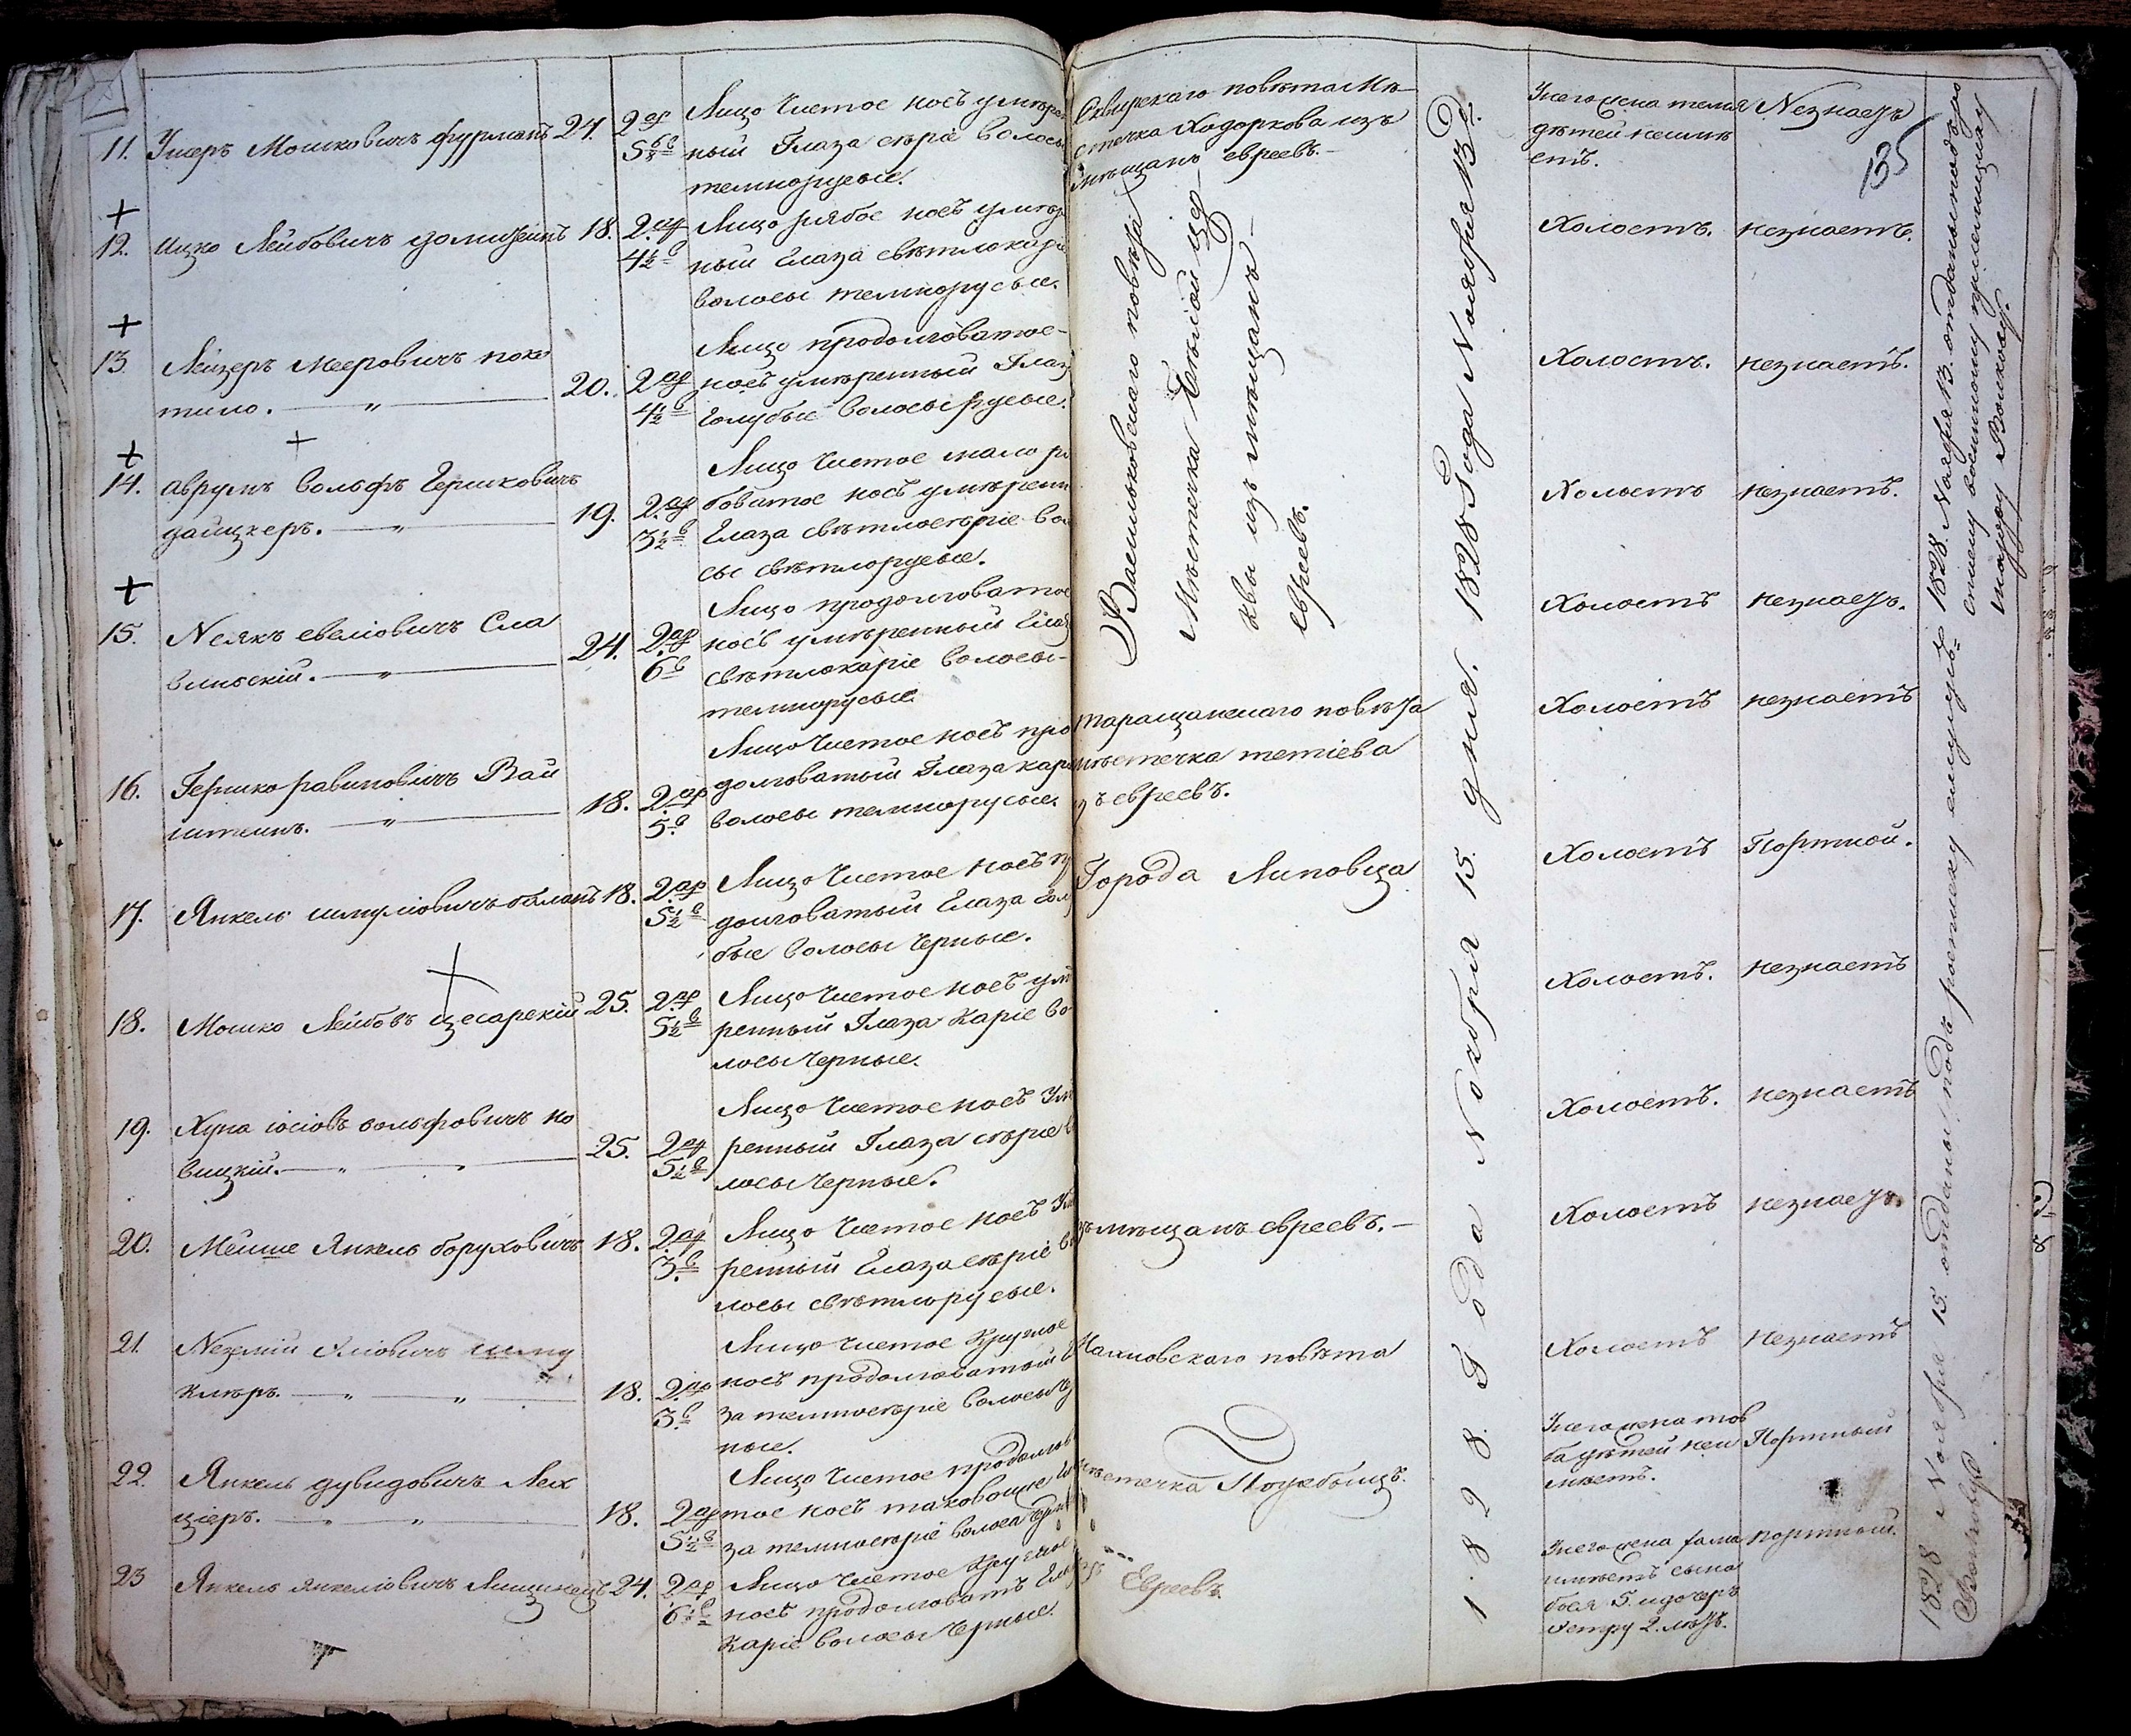 11. Умеръ Мошковичъ фурманъ 21. 2 ар 5 6/8 в Лицо чистое носъ умѣрен
ный Глаза сѣріе волосы
темнорусые.
Сквирскаго повѣта Мѣ
стечка Ходоркова изъ
мѣщанъ евреевъ.
У него жена
дѣтей неимѣ
етъ.
Незнаетъ
135
12. Ицко Лейбовичъ 18. 2 ар 4 1/2 в Лицо рябое носъ умѣр
ный Глаза свѣтлокаріе
волосы темнорусые.
Холостъ. незнаетъ.
13. Лейзеръ Мееровичъ поко
тило. 20. 2 ар 4 1/2 в
Лицо продолговатое
носъ умѣренный Глаза
голубые волосы русые.
Холостъ. незнаетъ.
14. Аврумъ Вольфъ Гершковичъ
19. 2 ар 3 1/2 в
Лицо чистое мало ря
боватое носъ умѣренн
Глаза свѣтлосѣріе во
сы свѣтлорусые.
Холостъ незнаетъ.
15. Сла
винскій. 24. 2 ар 6 в
Лицо продолговатое
носъ умѣренный Глаз
свѣтлокаріе волосы
темнорусые
Холостъ незнаетъ.
Васильковскаго повѣта
Мѣстечка Бѣлой Цер
квы изъ мѣщанъ
евреевъ.
16. Гершко рабиновичъ Вай
штейнъ. 18. 2 ар 5 в
Лицо чистое носъ про
долговатый Глаза кар
волосы темнорусые.
таращанскаго повѣта
мѣстечка тетіева
зъ евреевъ.
Холостъ незнаетъ
17. Янкель шмуліовичъ баланъ 18. 2 ар 5 1/2 в
Лицо чистое носъ п
долговатый Глаза гол
бые волосы черные.
Города Липовца
Холостъ Портной.
18. Мошко Лейбовъ цесарскій 25. 2 ар 5 1/2 в
Лицо чистое носъ умѣ
ренный Глаза каріе во
лосы черные.
Холостъ. незнаетъ
19. Хуна іосіовъ вольфовичъ но
вицкій. 25. 2 ар 5 1/2 в
Лицо чистое носъ Умѣ
ренный Глаза сѣріе в
лосы черные.
Холостъ. незнаетъ
20. Мейше Янкель боруховичъ 18. 2 ар 3 в
Лицо чистое носъ Умѣ
ренный Глаза сѣріе в
лосы свѣтлорусые.
зъ мѣщанъ евреевъ.
Холостъ незнаетъ.
21. Нехемій шму
клѣръ. 18. 2 ар 3 в
Лицо чистое круглое
носъ продолговатый
за темносѣріе волосы че
ные.
Махновскаго повѣта
Холостъ Незнаетъ
22. Янкель дувидовичъ Лех
цѣръ. 18. 2 ар 5 1/2 в
Лицо чистое продолгов
тое носъ таковоже Гла
за темносѣріе волоса черны
мѣстечка Погребыщъ.
У него жена тов
ба дѣтей неи
мѣетъ.
Портный
23 Янкель янкеліовичъ 24. 2 ар 6 1/2 в
Лицо чистое круглое
носъ продолговатъ Глаз
каріе волосы черные.
изъ Евреевъ
У него жена
имѣетъ сына
5. и дочеръ
2. лѣтъ.
портный.
1828 Года Ноября 13 д.
1828. Года Ноября 15. дня.
1828. Ноября 13. отданы подъ ро
списку военному пріемщику
маіору Волкову.
1828 Ноября 15. отданы подъ росписку ему же
Волкову